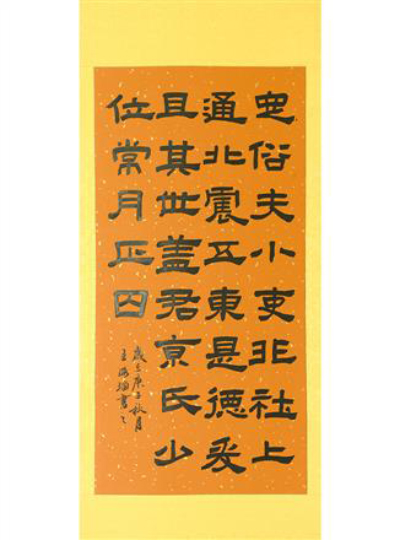 俗夫小吏北社上
通北震五東是德爰
且其世蓋君京氏少
位常月正囚
歲在庚子秋月
王海書